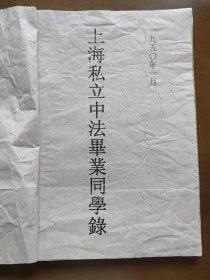 一九五〇年一月
上海私立中法畢業同學錄